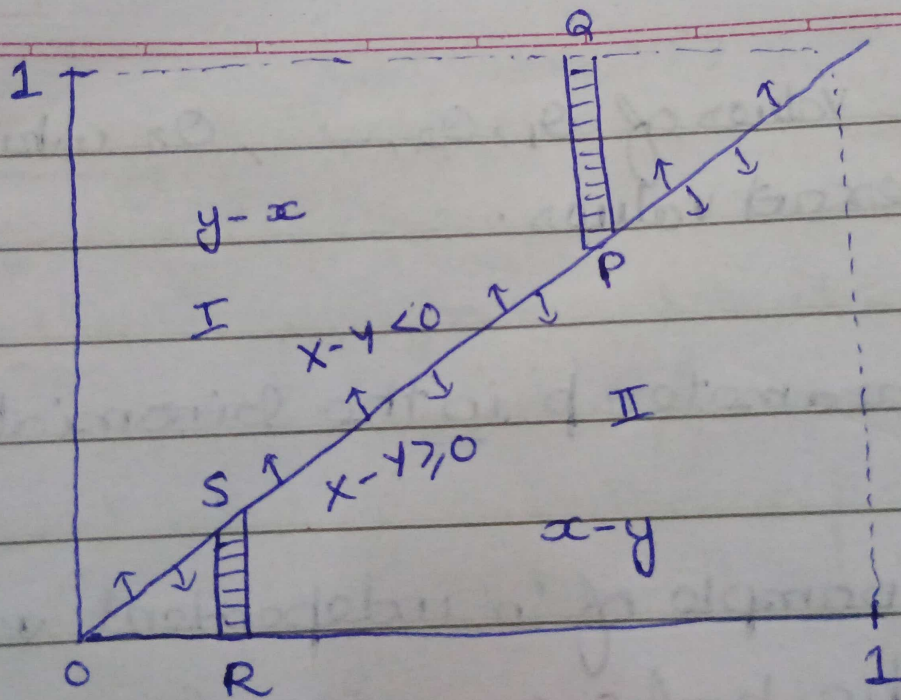 Q
1
y-x
P
I
x-y<0
II
S
x-y≥0
x-y
0
R
1